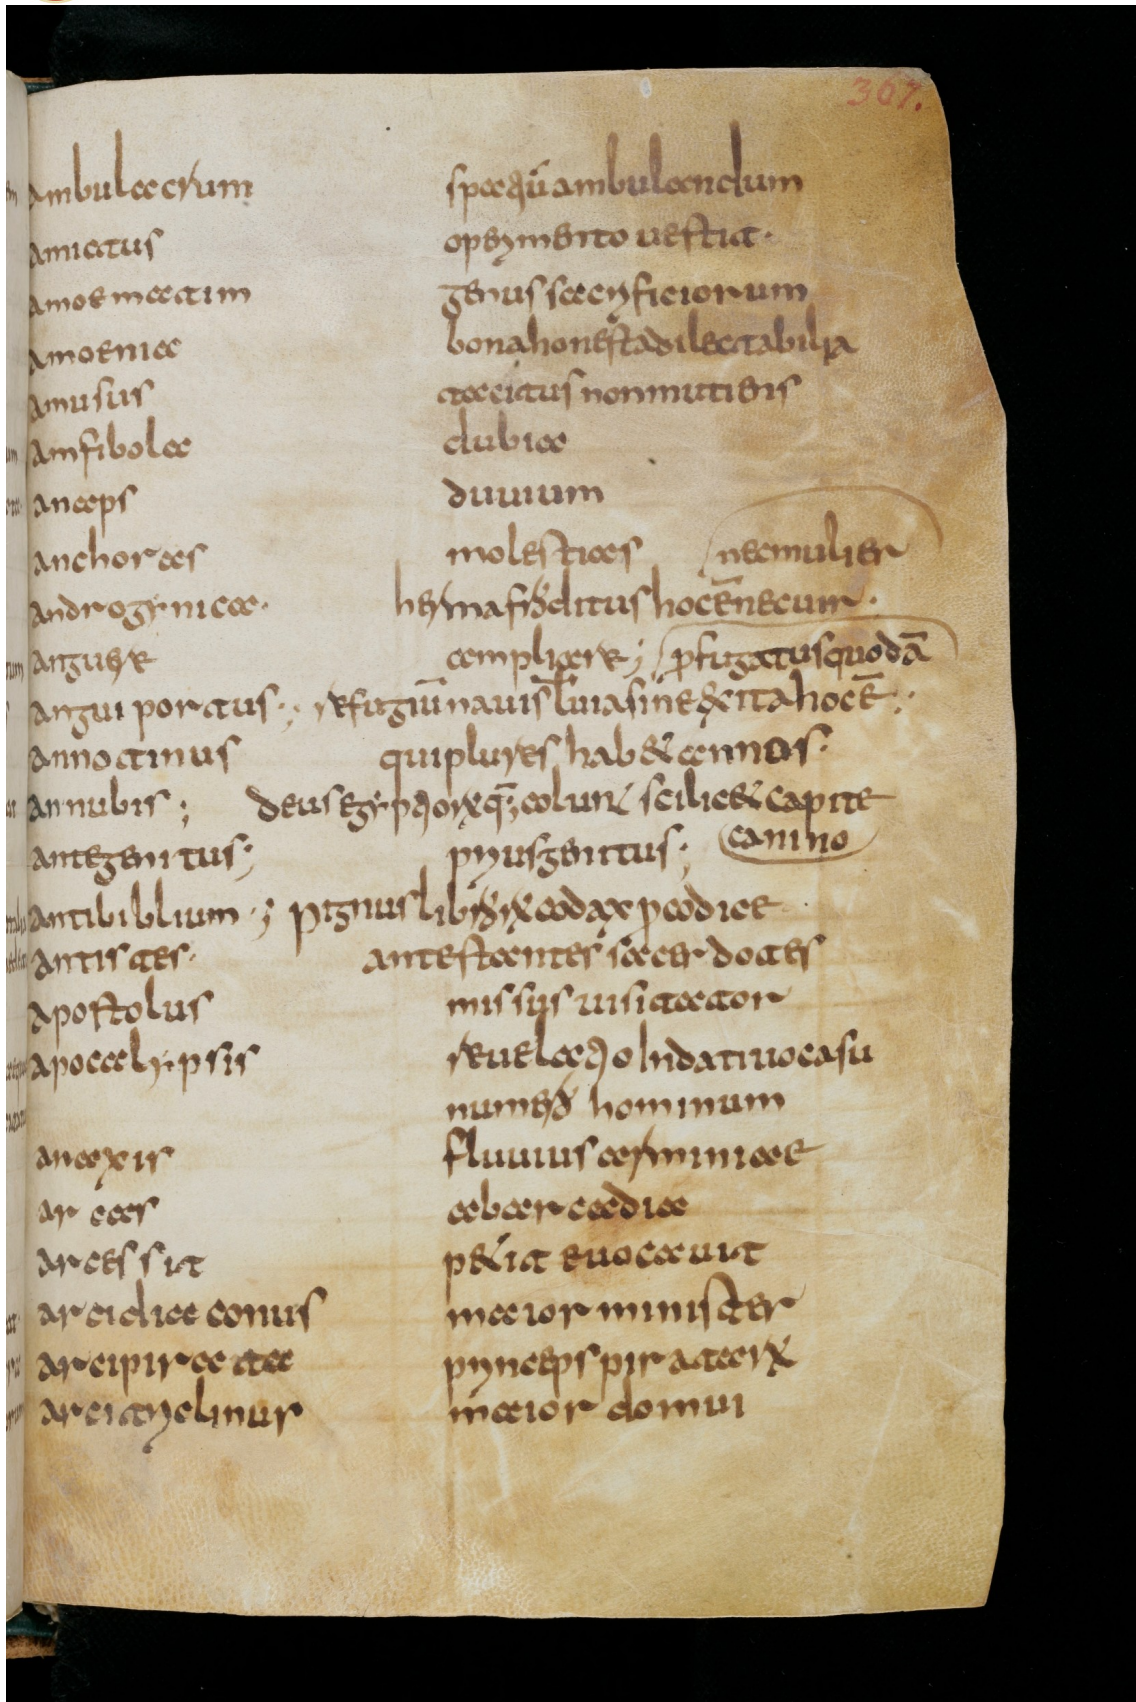 367.
ambulacrum spatiū ambulandum
amictus opermento uestit·
amormatim genus sacrificiorum
amoenia bona honesta dilectabilia
amusus tacitus non mutiens
amfibola dubia
anceps duuium
anchoras molestias nec mulier
androgynica· hermafroditus hoc ē nec uir·
angure amplicare; profugatus quodā
anguiportus·; refugiū nauis ł uia sine exita hoc ē·;
annotinus qui plures habet annos·
annubis; deus egyptiorum q; colunt scilicet capite
antegenitus; prius genitus; canino
antibiblium·; pignus libri pro codice
antistes· antestantes sacerdotes
apostolus missus uisitator
apocalypsis reuelatio In datiuo casu
numero hominum
anaxis fluuius arminiae
arcas ab arcadia
arcessit petit euocauit
arcidiaconus maior minister
arcipirata princeps piratarum
arcitriclinus maior domui